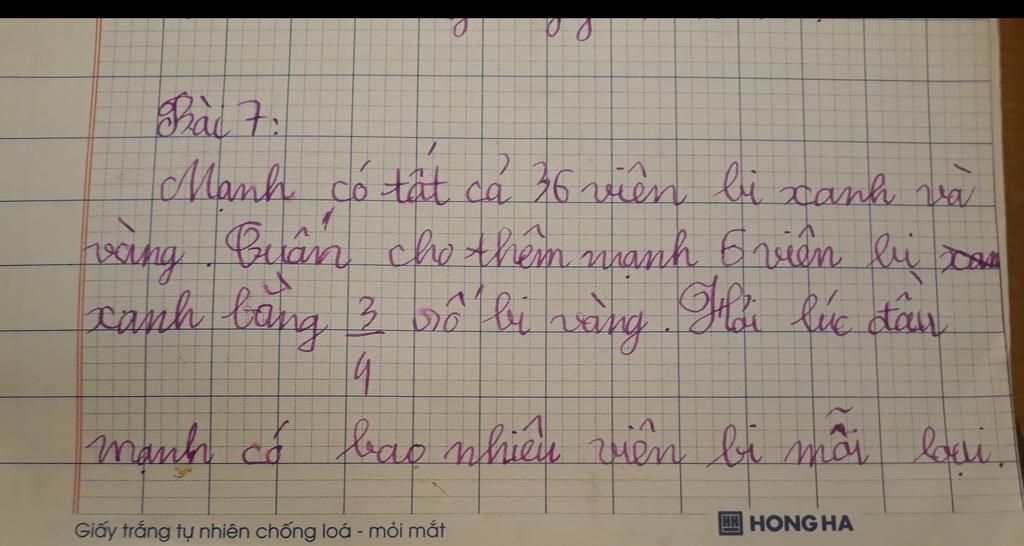 Bài 7:
Mạnh có tất cả 36 viên bi xanh và
vàng. Tuấn cho thêm mạnh 6 viên bi
xanh bằng 3/4 số bi vàng. Hỏi lúc đầu
mạnh có bao nhiêu viên bi mỗi loại.
Giấy trắng tự nhiên chống loá - mỏi mắt
HH HONG HA